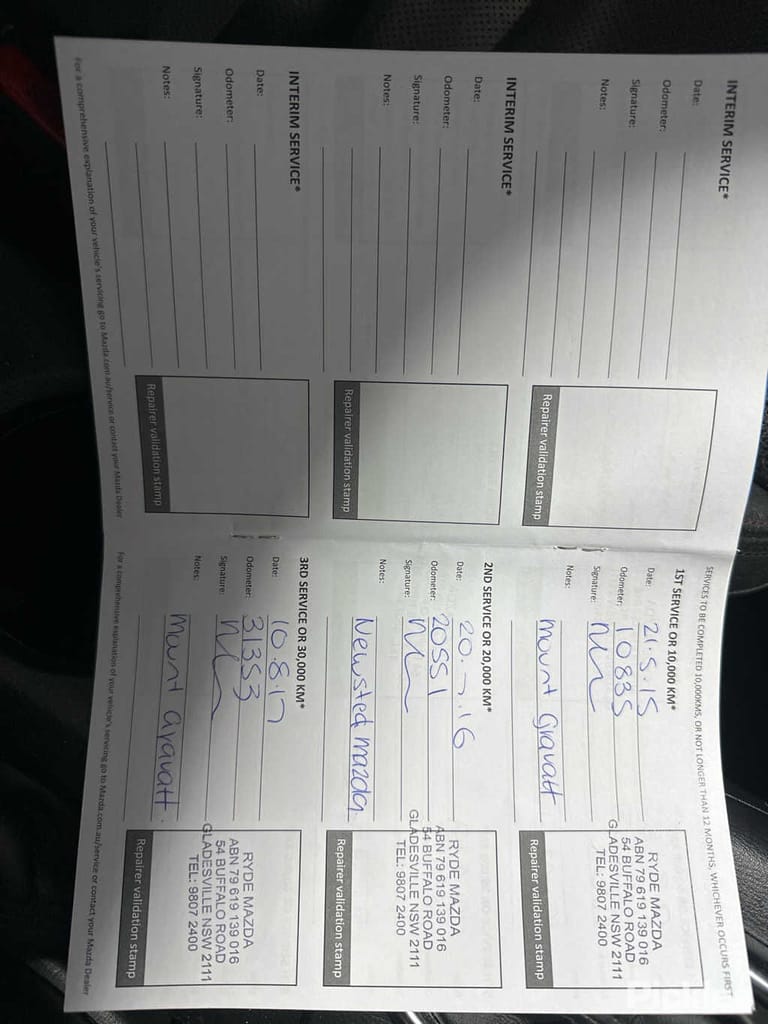 INTERIM SERVICE*
Date:
Odometer:
Signature:
Notes:
Repairer validation stamp
INTERIM SERVICE*
Date:
Odometer:
Signature:
Notes:
Repairer validation stamp
INTERIM SERVICE*
Date:
Odometer:
Signature:
Notes:
Repairer validation stamp
For a comprehensive explanation of your vehicle's servicing go to Mazda.com.au/service or contact your Mazda Dealer
SERVICES TO BE COMPLETED 10,000KMS, OR NOT LONGER THAN 12 MONTHS, WHICHEVER OCCURS FIRST
1ST SERVICE OR 10,000 KM*
Date: 21.5.15
Odometer: 10835
Signature:
Notes:
Mount Gravatt
RYDE MAZDA
ABN 79 619 139 016
54 BUFFALO ROAD
GLADESVILLE NSW 2111
TEL: 9807 2400
Repairer validation stamp
2ND SERVICE OR 20,000 KM*
Date: 20.7.16
Odometer: 20551
Signature:
Notes:
Newsted Mazda
RYDE MAZDA
ABN 79 619 139 016
54 BUFFALO ROAD
GLADESVILLE NSW 2111
TEL: 9807 2400
Repairer validation stamp
3RD SERVICE OR 30,000 KM*
Date: 10.8.17
Odometer: 31353
Signature:
Notes:
Mount Gravatt
RYDE MAZDA
ABN 79 619 139 016
54 BUFFALO ROAD
GLADESVILLE NSW 2111
TEL: 9807 2400
Repairer validation stamp
For a comprehensive explanation of your vehicle's servicing go to Mazda.com.au/service or contact your Mazda Dealer